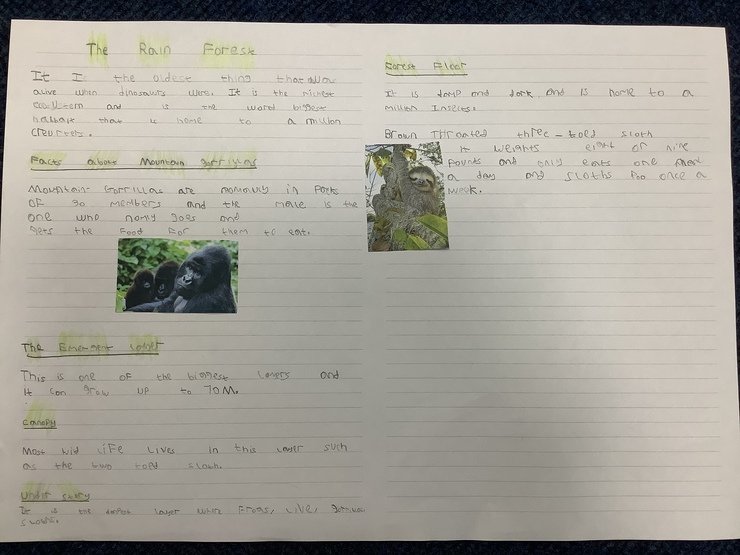 The Rain Forest
It Is the oldest thing that was
alive when dinosaurs were. It is the richest
and is the word biggest
habbat that is home to a million
Facts about Mountain Gorrillas
Mountain Gorrillas are in Packs
OF 30 members and the male is the
one who nomly goes and
gets the Food For them to eat.
The Emergent Layer
This is one of the biggest Layers and
it can grow up to 70M.
Canopy
Most wid liFe Lives in this Layer such
as the two toed sloth.
Under story
It is the layer when Frogs, Live,
Forest Floor
It is damp and dark and is home to a
million Insects.
Brown Throated three-toed sloth
It weights eight or nine
Pounds and only eats one meal
a day and sloths Poo once a
week.